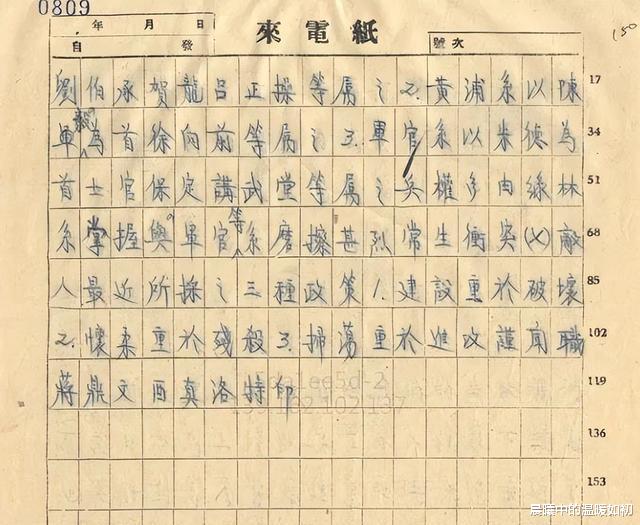 0809
年 月 日
來電紙
自 發
號次
150
劉伯承賀龍呂正操等屬之2.黃浦系以陳 17
軍毅為首徐向前等屬之3.軍官系以朱德為 34
首士官保定講武堂等屬之兵權多由綠林 51
系掌握與軍官等系磨擦甚烈常生衝突(乂)敵 68
人最近所採之三種政策1.建設重於破壞 85
2.懷柔重於殘殺3.掃蕩重於進攻謹聞職 102
蔣鼎文酉真洛特印 119
136
153
晨曦中的温暖如初